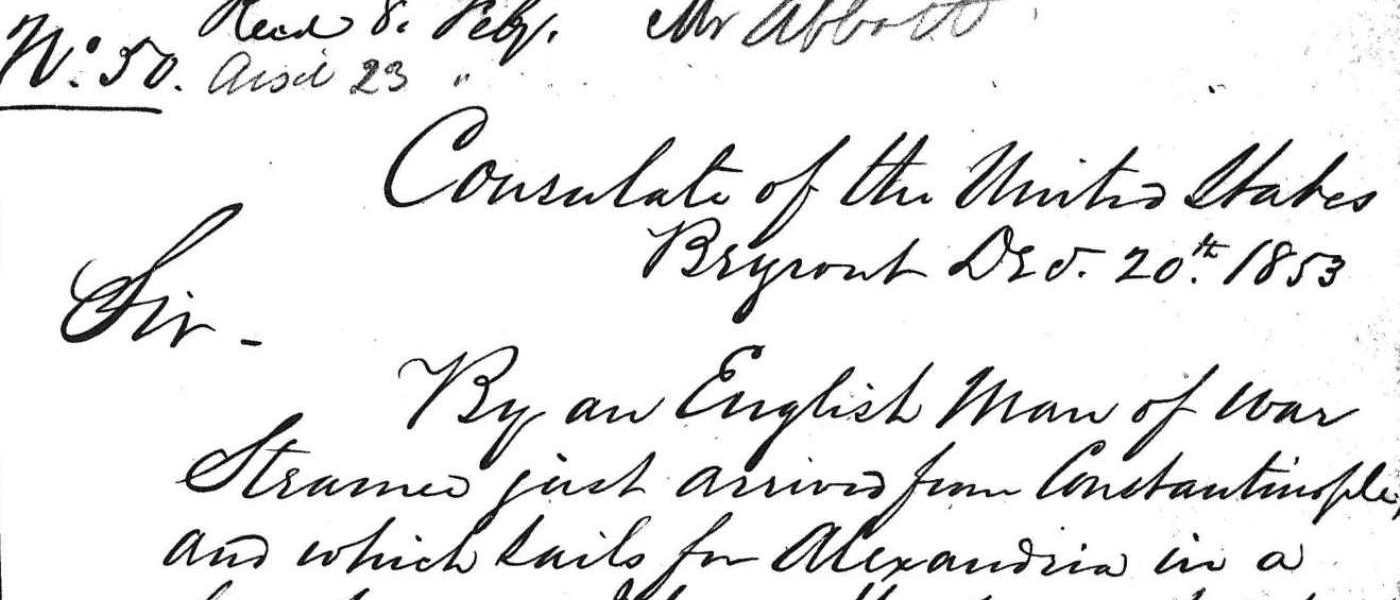 Recd 8. Feby. Mr Abbott
No. 50. Ansd 23 "
Consulate of the United States
Beyrout Dec. 20th. 1853
Sir -
By an English Man of War
Steamer just arrived from Constantinople,
and which sails for Alexandria in a